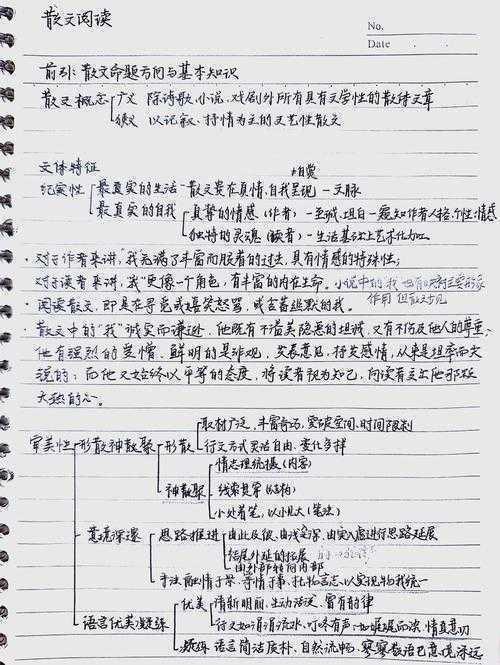 散文阅读
No.
Date
前引：散文命题方向与基本知识
散文概念 广义 除诗歌、小说、戏剧外所有具有文学性的散体文章
狭义 以记叙、抒情为主的文艺性散文
文体特征
纪实性 最真实的生活—散文贵在真情，自我呈现—文脉
最真实的自我 真挚的情感（作者）—至诚、坦白—窥知作者人格、个性、情感
独特的灵魂（读者）—生活基础上艺术化加工
·对于作者来讲，“我”充满了丰富而脱着的过去，具有情感的特殊性；
·对于读者来讲，“我”更像一个角色，有丰富的内在生命。小说中的我也有
作用 但散文少见
·阅读散文，即是在寻觅我嬉笑怒骂，或含蓄幽默的我。
散文中的“我”诚实而谦逊，他既有不溢美隐恶的坦诚，又有不伤及他人的尊重，
他有强烈的爱憎，鲜明的是非观，发表意见，抒发感情，从来是坦率而大
胆的；而他又始终以平等的态度，将读者视为知己，向读者交出他那颗
火热的心。
审美性 形散神凝聚 形散 取材广泛，丰富奇巧，突破空间、时间限制
行文方式灵活自由、变化多样
神凝聚 情志理统摄（内容）
线索贯穿（结构）
小处着笔，以小见大（笔法）
意境深邃 思路推进 由此及彼，由浅入深，由实入虚进行思路延展
结尾外延的拓展
由外部转向内部
手法 融情于景、寄情于事、托物言志，以实现物我统一
语言优美凝练 优美 清新明丽，生动活泼，富有韵律
行文如涓涓流水，叮咚有声，如娓娓而谈，情真意切
凝练 语言简洁质朴，自然流畅，寥寥数语已意境深远